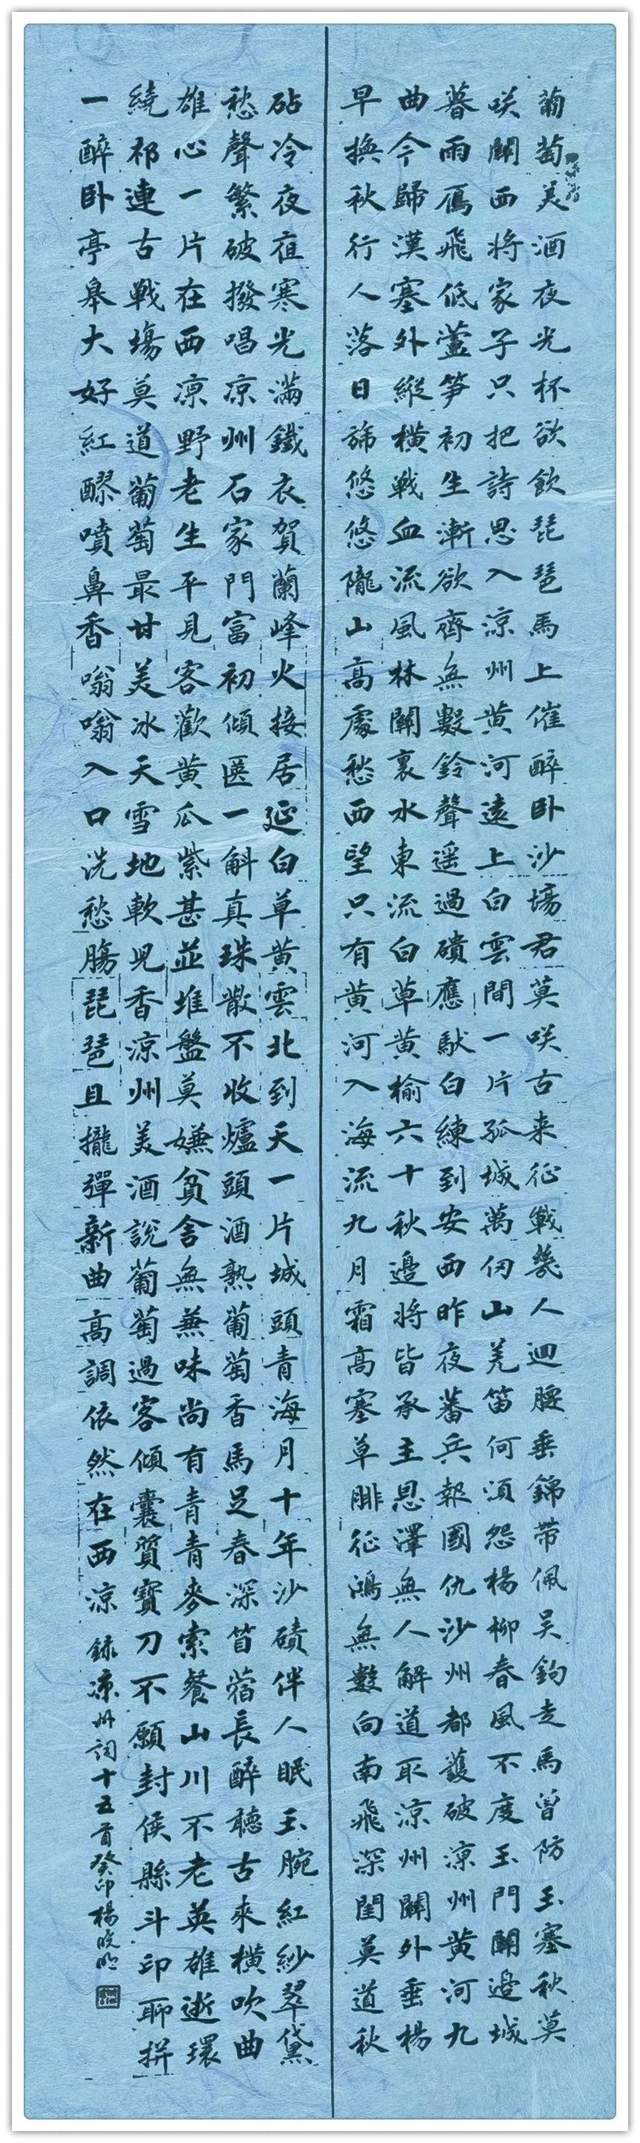 葡萄美酒夜光杯欲飲琵琶馬上催醉卧沙場君莫咲古来征戰幾人迴腰垂錦带佩吴鈎走馬曾防玉塞秋莫
咲關西將家子只把詩思入涼州黄河遠上白雲間一片孤城萬仞山羌笛何須怨楊柳春風不度玉門關邉城
暮雨雁飛低蘆笋初生漸欲齊無數鈴聲遥過磧應馱白練到安西昨夜蕃兵報國仇沙州都護破涼州黄河九
曲今歸漢塞外縱横戰血流風林關裏水東流白草黄榆六十秋邉將皆承主恩澤無人解道取涼州關外垂楊
早换秋行人落日旆悠悠隴山高處愁西望只有黄河入海流九月霜高塞草腓征鴻無數向南飛深閨莫道秋
砧冷夜夜寒光滿鐵衣賀蘭峰火接居延白草黄雲北到天一片城頭青海月十年沙磧伴人眠玉腕紅紗翠黛
愁聲繁破撥唱凉州石家門富初傾匧一斛真珠散不收爐頭酒熟葡萄香馬足春深苜蓿長醉聽古來横吹曲
雄心一片在西凉野老生平見客歡黄瓜紫葚並堆盤莫嫌貧舍無兼味尚有青青麥索餐山川不老英雄逝環
繞祁連古戰場莫道葡萄最甘美冰天雪地軟兒香涼州美酒說葡萄過客傾囊質寶刀不願封侯縣斗印聊拼
一醉卧亭皋大好紅醪噴鼻香嗡嗡入口洗愁腸琵琶且攏彈新曲高調依然在西涼 錄凉州詞十五首癸卯楊晓明